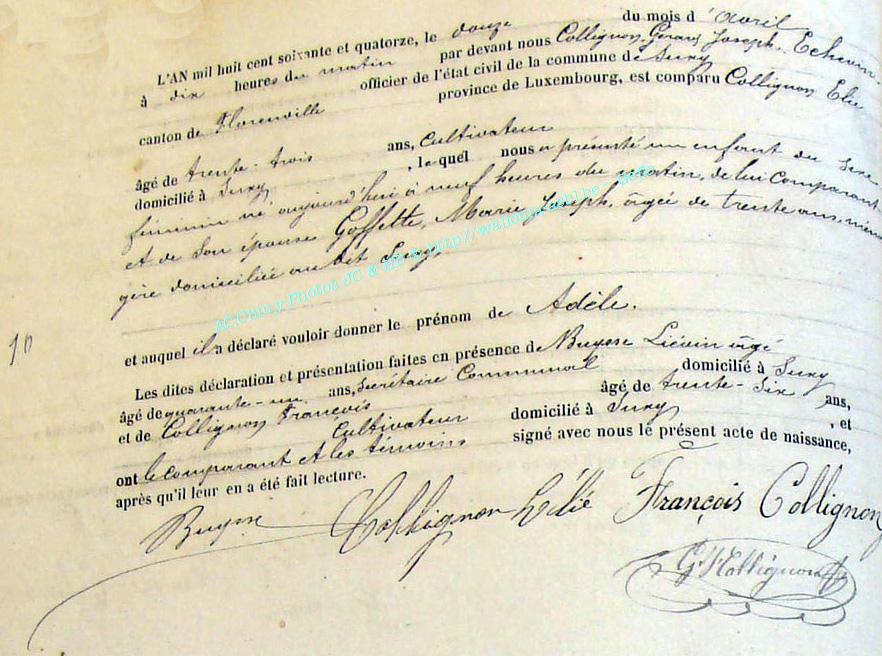 L'AN mil huit cent soixante et quatorze, le douze du mois d'Avril
à dix heures du matin par devant nous Collignon, Gérard Joseph, Echevin
officier de l'état civil de la commune de Suxy
canton de Florenville province de Luxembourg, est comparu Collignon Elie
âgé de trente-trois ans, Cultivateur
domicilié à Suxy, lequel nous a présenté un enfant du sexe
féminin né aujourd'hui à neuf heures du matin, de lui comparant
et de son épouse Goffette, Marie Joseph, âgée de trente ans, ména
gère domiciliée au dit Suxy,
10
et auquel il a déclaré vouloir donner le prénom de Adèle.
Les dites déclaration et présentation faites en présence de Buysse Liévin âgé
âgé de quarante-un ans, Secrétaire Communal domicilié à Suxy
et de Collignon François âgé de trente-six ans,
Cultivateur domicilié à Suxy, et
ont le comparant et les témoins signé avec nous le présent acte de naissance,
après qu'il leur en a été fait lecture.
Buysse Collignon Elié François Collignon
G J Collignon